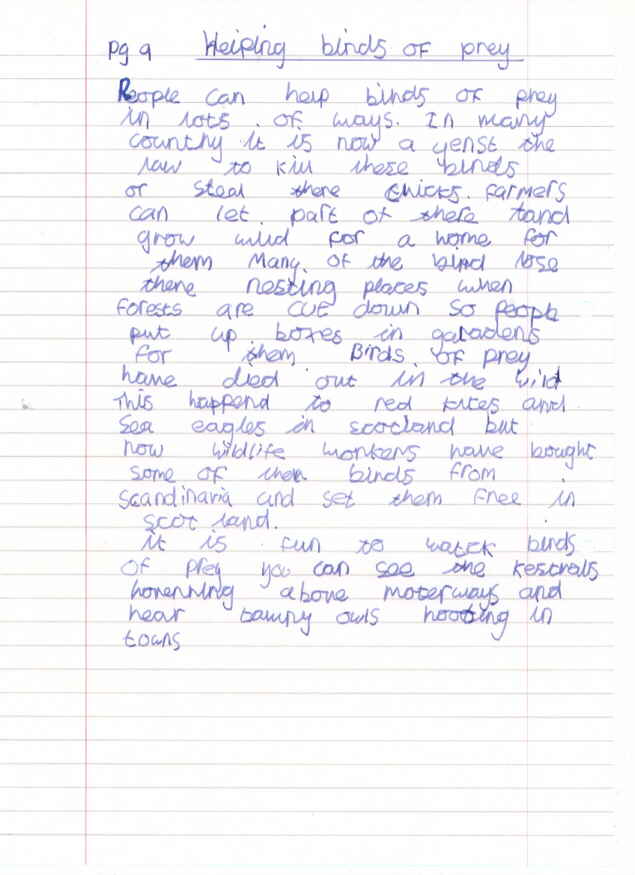 pg 9 Helping birds of prey
People can help birds of prey
in lots. of ways. In many
counthy it is now a yenst the
law to kill these birds
or steal there chicks. farmers
can let. part of there land
grow wild for a home for
them Many. of the bird lose
there nesting places when
forests are cut down so people
put up boxes in garadens
for them Birds. of prey
have died out in the wild
This happend to red kites and
Sea eagles in scotland but
now wildlife workers have bought
some of then birds from
Scandinaria and set them free in
scot land.
it is fun to watck birds
of prey you can see the kestrals
hovenning above moterways and
hear tawny owls hooting in
towns